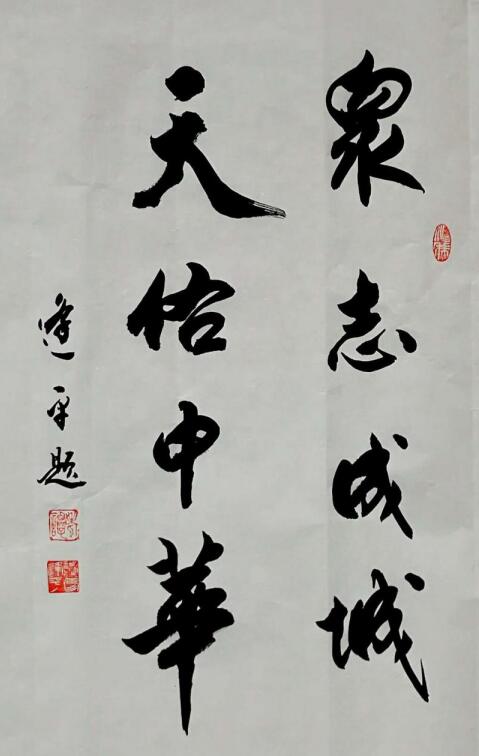 眾志成城
天佑中華
逢平題